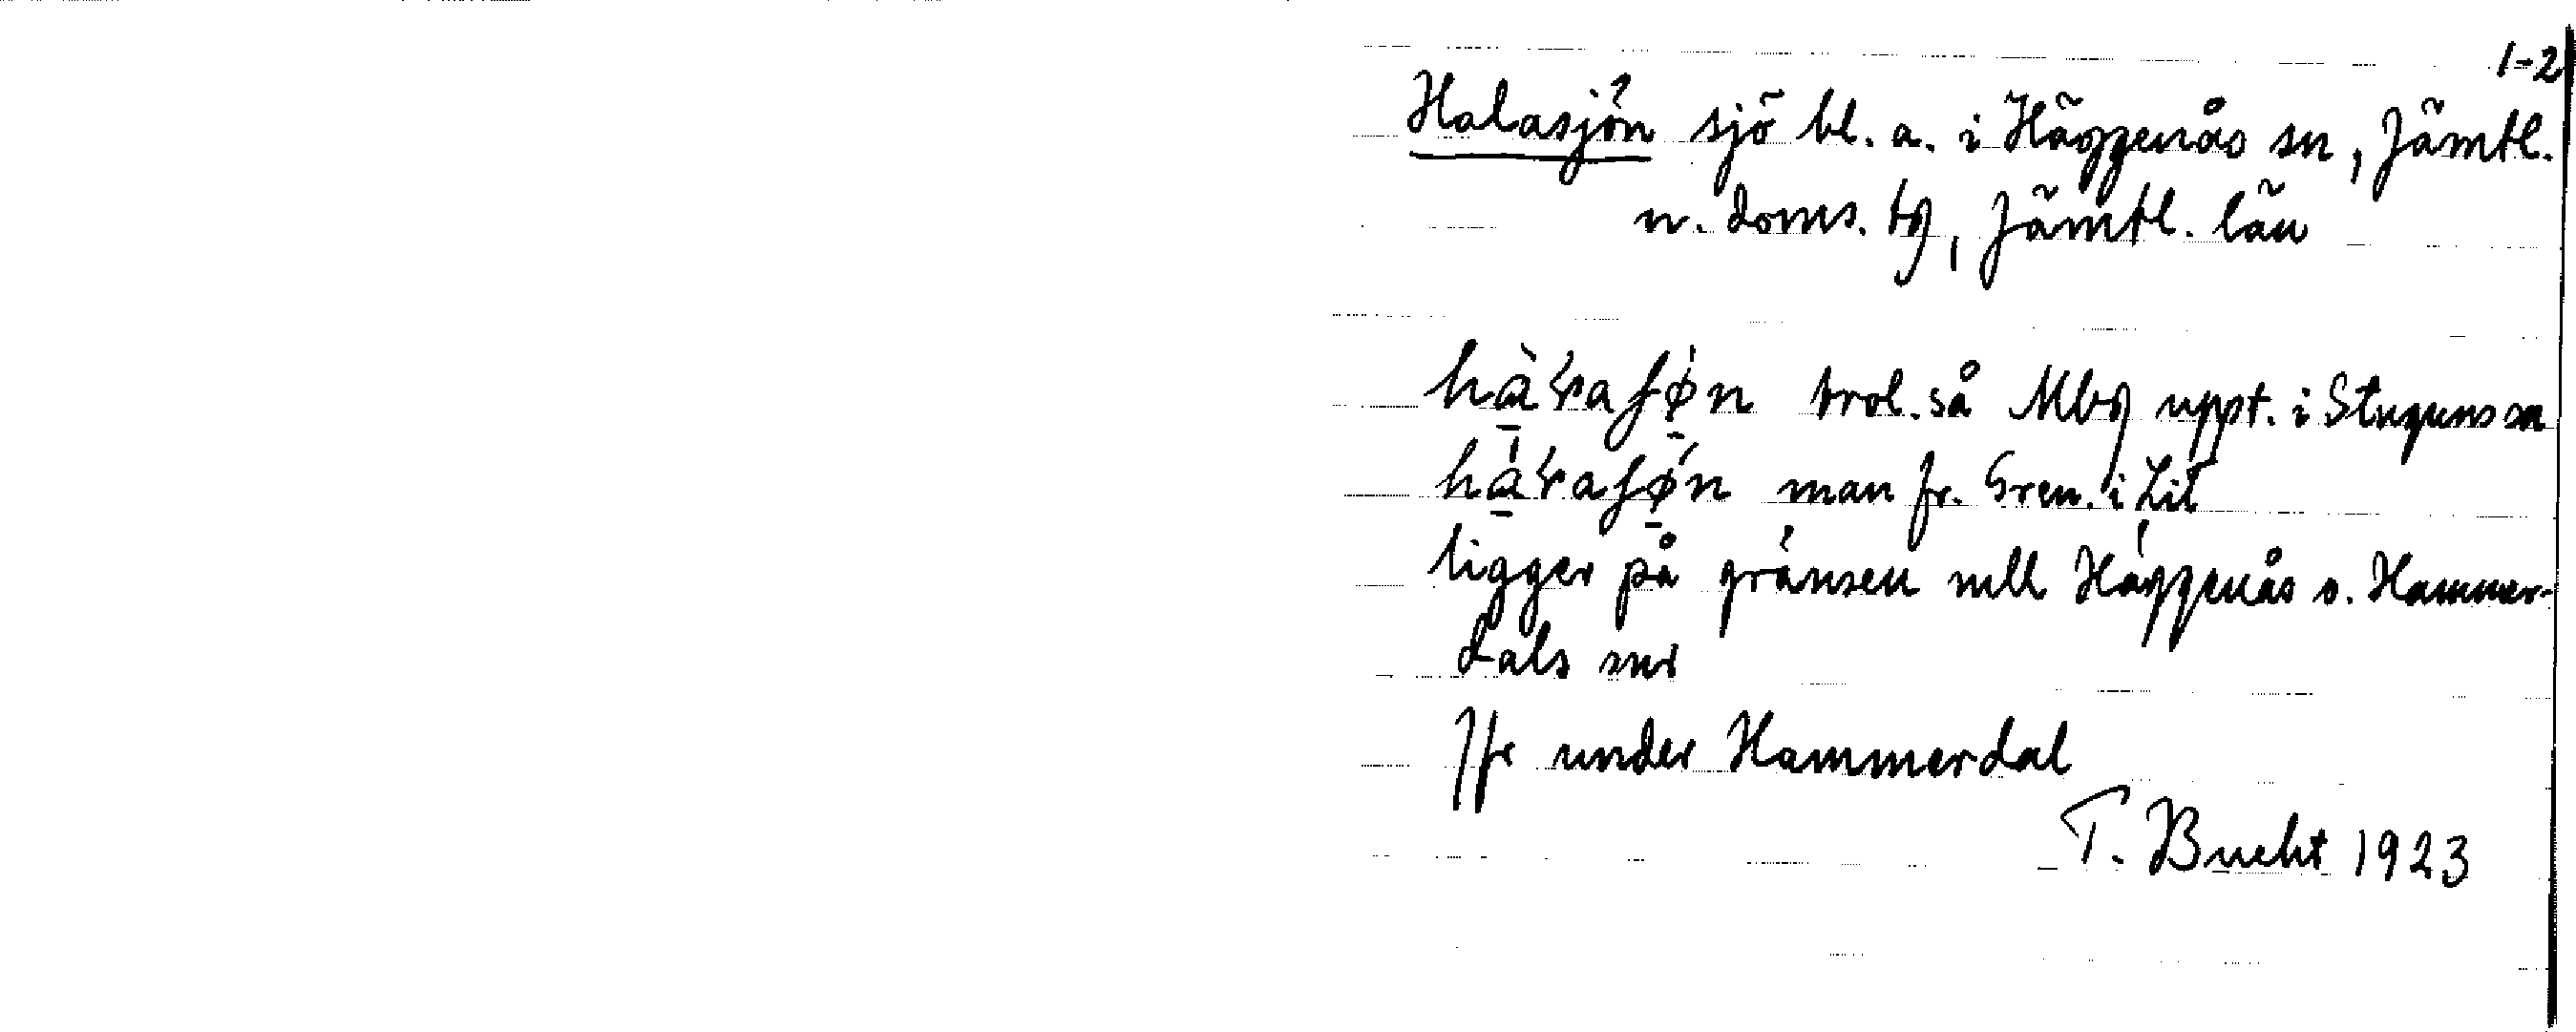 1-2
Halasjön sjö bl. a. i Häggenås sn, Jämtl.
n. doms. tg, Jämtl. län
trol. så Mbg uppt. i Stuguns sn
man fr. Gren. i Lit
ligger på gränsen mell Häggenås o. Hammer-
dals snr
Jfr under Hammerdal
T. Bucht 1923